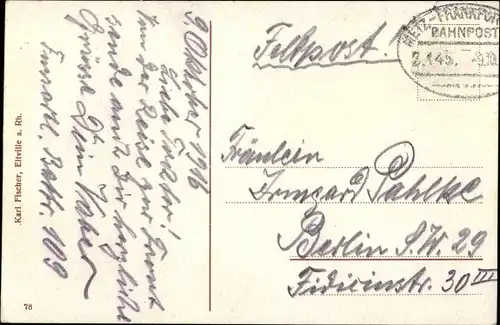 9. Oktober 1916
Liebe Tochter!
Von der Reise zur Front
sende auch Dir herzliche
Grüsse Dein Vater
Fussartl. Battr. 109
Feldpost!
METZ-FRANKFURT
BAHNPOST
Z.145. -9.10.
Fräulein
Irmgard Pahlke
Berlin S.W 29
Fidicinstr. 30 III
Karl Fischer, Eltville a. Rh.
78